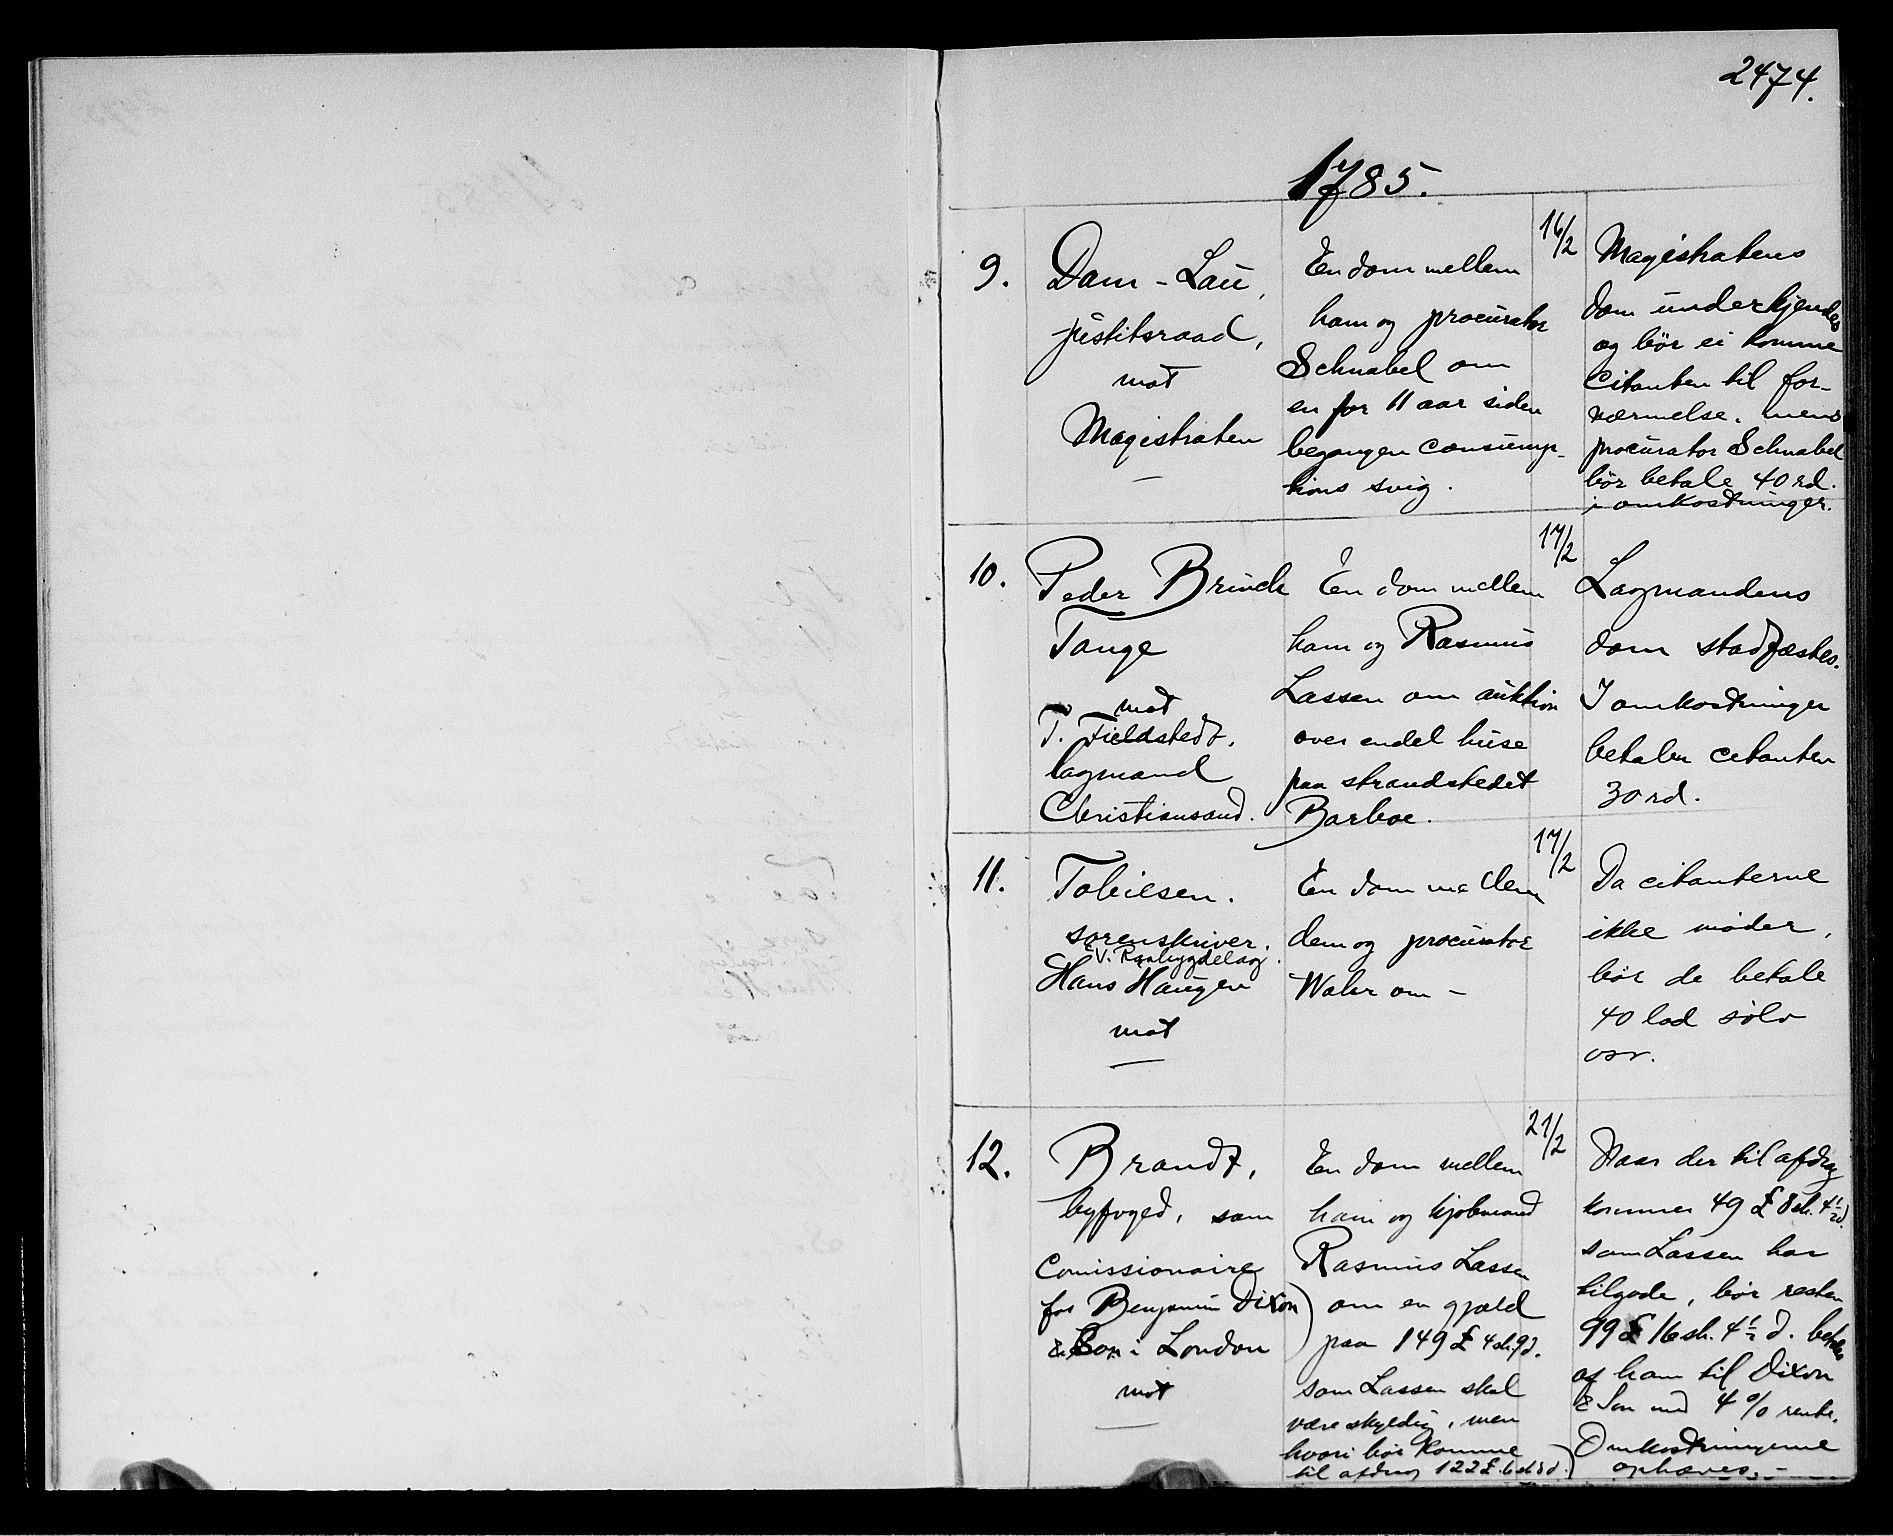 2474.
1785.
9.
Dam - Lau,
justitsraad,
mot
Magistraten
—
En dom mellem
ham og procurator
Schnabel om
en for 11 aar siden
begangen consump-
tions svig.
16/2
Magistratens
dom underkjendes
og bör ei komme
Citanten til for-
nærmelse. mens
procurator Schnabel
bör betale 40 rd.
i omkostninger.
10.
Peder Brinch
Tange
mot
T. Fieldstedt,
lagmand
Christiansand.
En dom mellem
ham og Rasmus
Lassen om auktion
over endel huse
paa strandstedet
Barboe.
17/2
Lagmandens
dom stadfæstes.
I omkostninger
betaler citanten
30 rd.
11.
Tobiesen.
sorenskriver.
v. Raabygdelag.
Hans Haugen
mot
—
En dom mellem
dem og procurator
Wahr om —
17/2
Da citanterne
ikke møder,
bör de betale
40 lod sölv
osv.
12.
Brandt,
byfoged, som
Comissionaire
for Benjamin Dixon
& Son i London
mot
—
En dom mellem
ham og kjøbmand
Rasmus Lassen
om en gjæld
paa 149 £ 4 sh. 9 d.
som Lassen skal
være skyldig, men
hvori bör komme
til afdrag 122 £.
21/2
Naar der til afdrag
kommer 49 £ 8 sh. 4½ d.
som Lassen har
tilgode, bör resten
99 £ 16 sh. 4½ d. betales
af ham til Dixon
& Son med 4 % rente.
Omkostningerne
ophæves. —